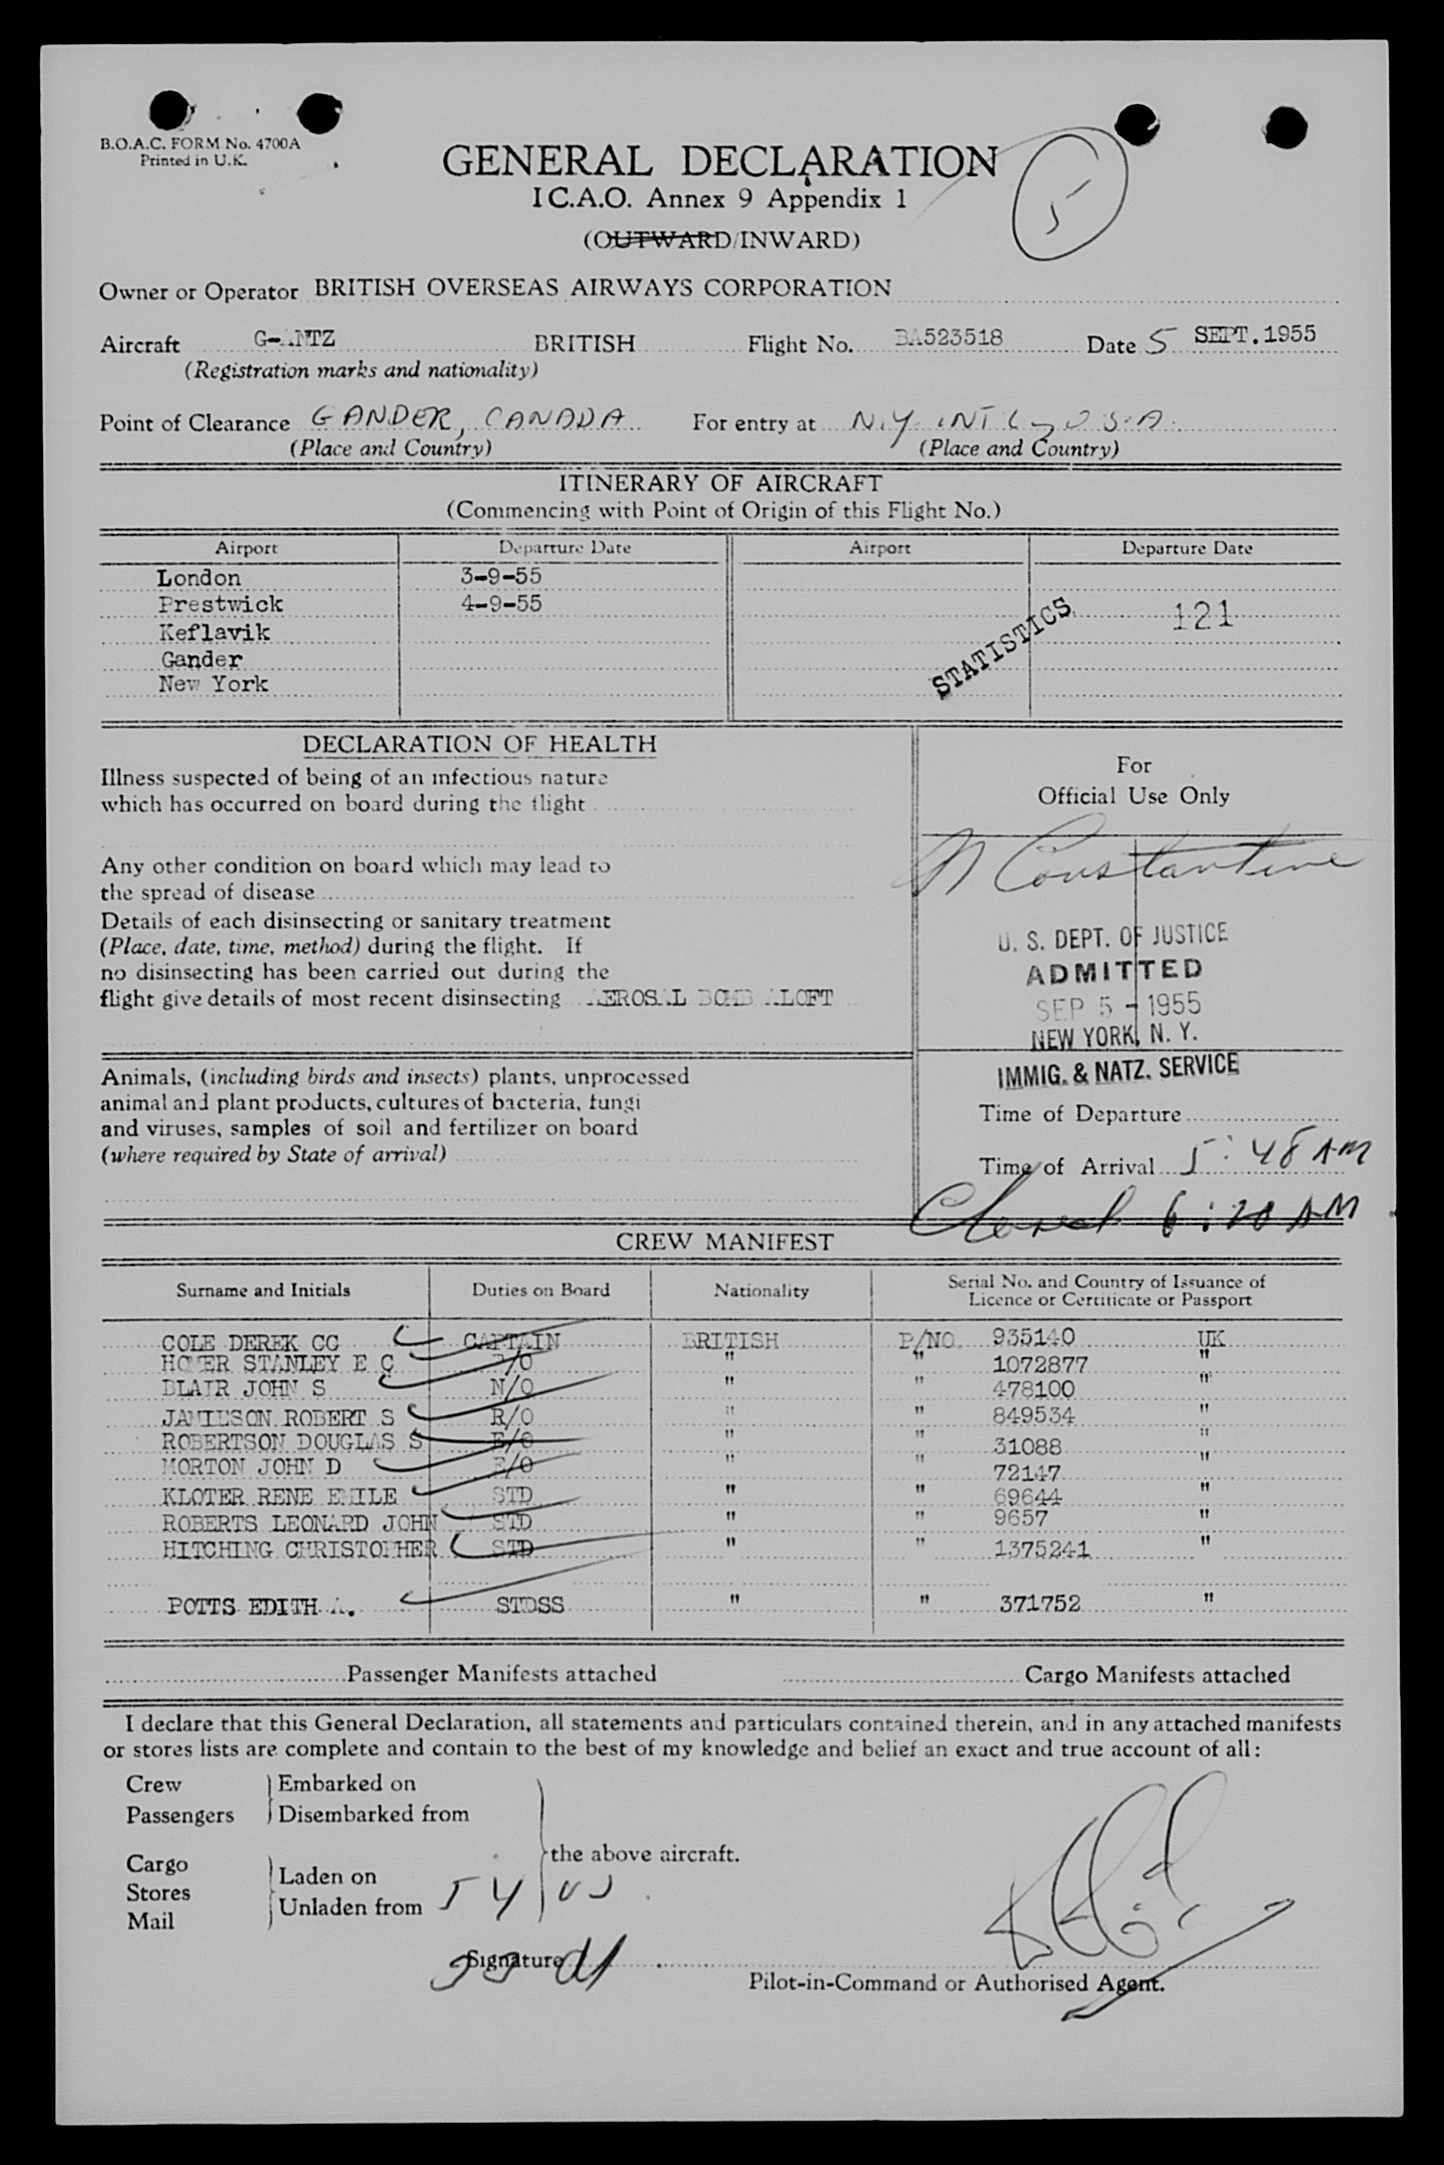 B.O.A.C. FORM No. 4700A
Printed in U.K.
GENERAL DECLARATION
I C.A.O. Annex 9 Appendix 1
5
(OUTWARD/INWARD)
Owner or Operator BRITISH OVERSEAS AIRWAYS CORPORATION
Aircraft BRITISH Flight No. BA523518 Date 5 SEPT. 1955
(Registration marks and nationality)
Point of Clearance GANDER, CANADA For entry at N.Y. INTL, USA.
(Place and Country) (Place and Country)
ITINERARY OF AIRCRAFT
(Commencing with Point of Origin of this Flight No.)
Airport Departure Date Airport Departure Date
London 3-9-55
Prestwick 4-9-55 STATISTICS 121
Keflavik
Gander
New York
DECLARATION OF HEALTH
Illness suspected of being of an infectious nature
which has occurred on board during the flight
Any other condition on board which may lead to
the spread of disease
Details of each disinsecting or sanitary treatment
(Place, date, time, method) during the flight. If
no disinsecting has been carried out during the
flight give details of most recent disinsecting AEROSAL BOMB ALOFT
Animals, (including birds and insects) plants, unprocessed
animal and plant products, cultures of bacteria, fungi
and viruses, samples of soil and fertilizer on board
(where required by State of arrival)
For
Official Use Only
N Constantine
U. S. DEPT. OF JUSTICE
ADMITTED
SEP 5 - 1955
NEW YORK, N. Y.
IMMIG. & NATZ. SERVICE
Time of Departure
Time of Arrival 5:48 AM
Cleared 6:20 AM
CREW MANIFEST
Surname and Initials Duties on Board Nationality Serial No. and Country of Issuance of
Licence or Certificate or Passport
COLE DEREK CG CAPTAIN BRITISH P/NO 935140 UK
STANLEY E C " " 1072877 "
BLAIR JOHN S N/O " " 478100 "
JAMIESON ROBERT S R/O " " 849534 "
ROBERTSON DOUGLAS S E/O " " 31088 "
MORTON JOHN D E/O " " 72147 "
KLOTER RENE EMILE STD " " 69644 "
ROBERTS LEONARD JOHN STD " " 9657 "
HITCHING CHRISTOPHER STD " " 1375241 "
POTTS EDITH A. STDSS " " 371752 "
Passenger Manifests attached Cargo Manifests attached
I declare that this General Declaration, all statements and particulars contained therein, and in any attached manifests
or stores lists are complete and contain to the best of my knowledge and belief an exact and true account of all:
Crew Embarked on
Passengers Disembarked from
the above aircraft.
Cargo
Laden on
Stores
Unladen from
Mail
Signature
Pilot-in-Command or Authorised Agent.